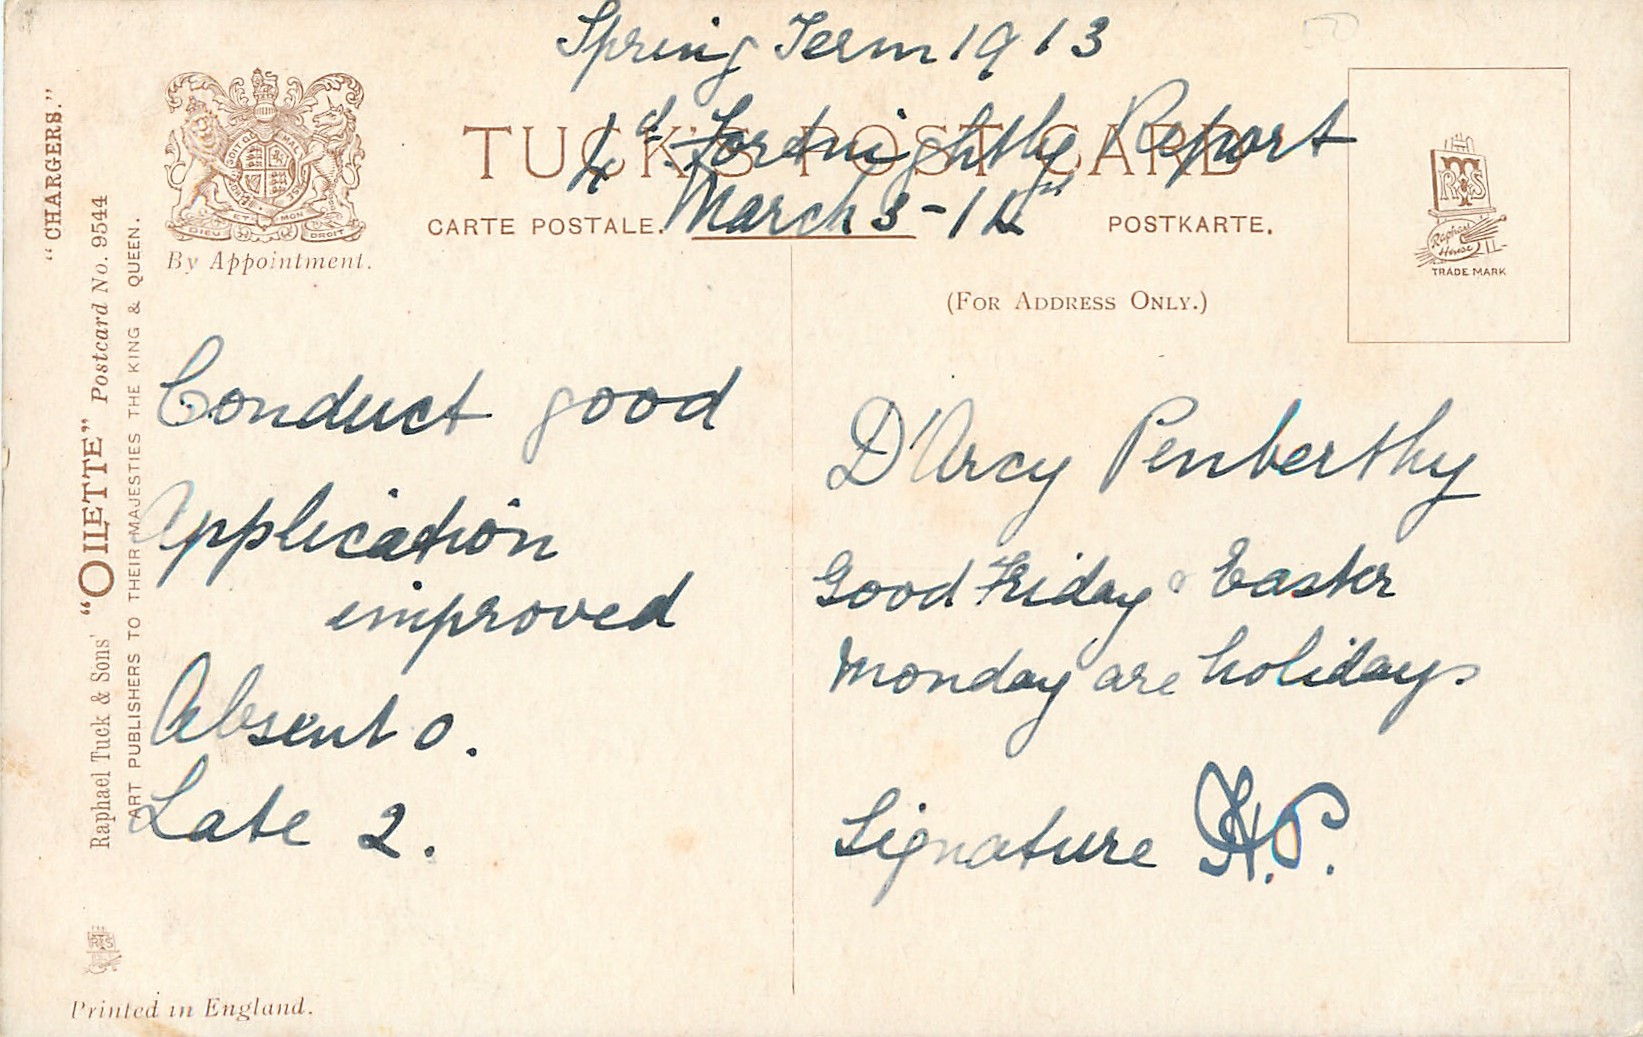 Spring Term 1913
Fortnightly Report
TUCK'S POST CARD
March 3-14
CARTE POSTALE.
POSTKARTE.
(FOR ADDRESS ONLY.)
TRADE MARK
DIEU ET MON DROIT
By Appointment.
"CHARGERS."
Raphael Tuck & Sons' "OILETTE" Postcard No. 9544
ART PUBLISHERS TO THEIR MAJESTIES THE KING & QUEEN.
Conduct good
Application
improved
Absent 0.
Late 2.
D'Arcy Penberthy
Good Friday & Easter
Monday are holidays
Signature H.P.
Printed in England.